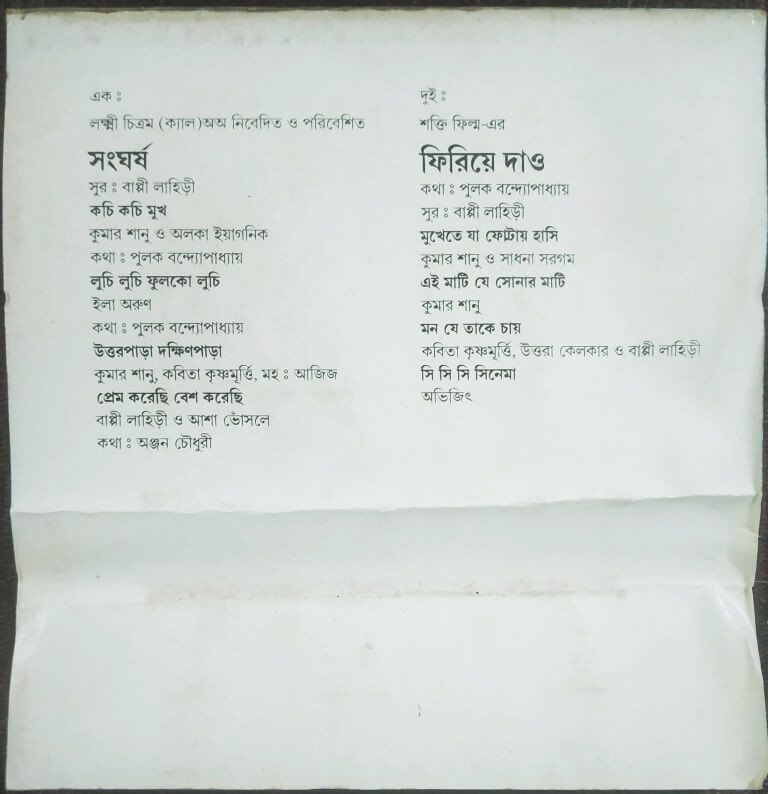 এক ঃ
লক্ষ্মী চিত্রম (ক্যাল)অঅ নিবেদিত ও পরিবেশিত
সংঘর্ষ
সুর ঃ বাপ্পী লাহিড়ী
কচি কচি মুখ
কুমার শানু ও অলকা ইয়াগনিক
কথা ঃ পুলক বন্দ্যোপাধ্যায়
লুচি লুচি ফুলকো লুচি
ইলা অরুণ
কথা ঃ পুলক বন্দ্যোপাধ্যায়
উত্তরপাড়া দক্ষিণপাড়া
কুমার শানু, কবিতা কৃষ্ণমূর্ত্তি, মহ ঃ আজিজ
প্রেম করেছি বেশ করেছি
বাপ্পী লাহিড়ী ও আশা ভোঁসলে
কথা ঃ অঞ্জন চৌধুরী
দুই ঃ
শক্তি ফিল্ম-এর
ফিরিয়ে দাও
কথা ঃ পুলক বন্দ্যোপাধ্যায়
সুর ঃ বাপ্পী লাহিড়ী
মুখেতে যা ফোটায় হাসি
কুমার শানু ও সাধনা সরগম
এই মাটি যে সোনার মাটি
কুমার শানু
মন যে তাকে চায়
কবিতা কৃষ্ণমূর্ত্তি, উত্তরা কেলকার ও বাপ্পী লাহিড়ী
সি সি সি সিনেমা
অভিজিৎ